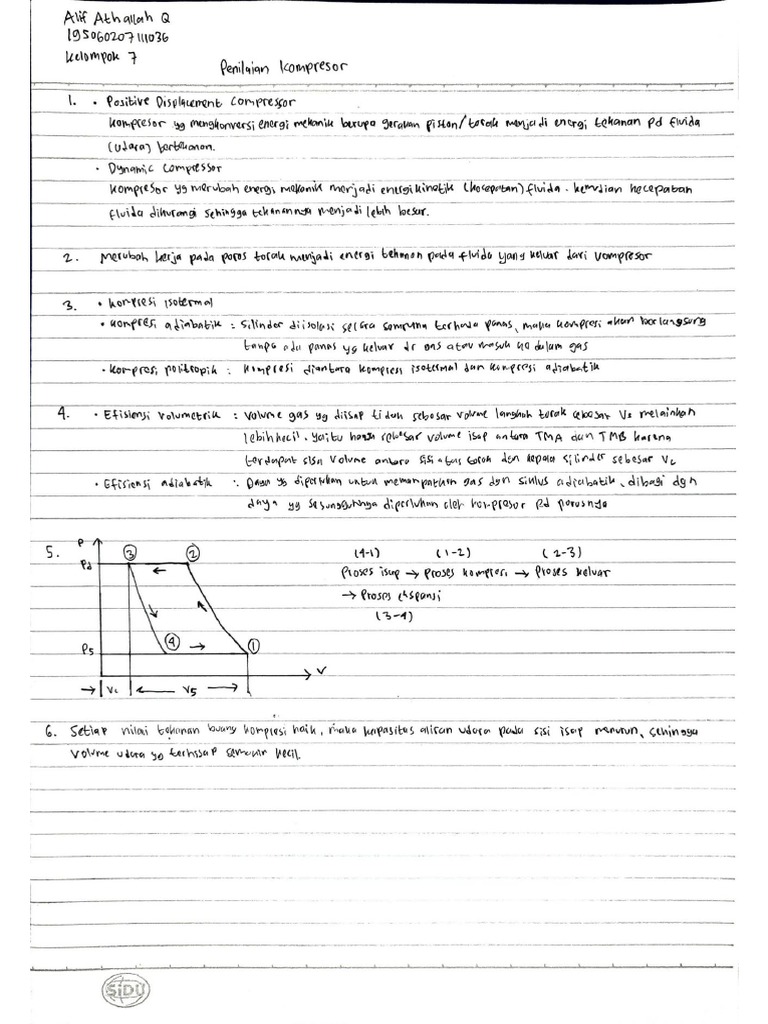 Alif Athallah Q
195060207111036
Kelompok 7
Penilaian Kompresor
1. • Positive Displacement Compressor
Kompresor yg mengkonversi energi mekanik berupa gerakan piston/torak menjadi energi tekanan pd fluida
(udara) bertekanan.
• Dynamic Compressor
Kompresor yg merubah energi mekanik menjadi energi kinetik (kecepatan) fluida. kemudian kecepatan
fluida dikurangi sehingga tekanannya menjadi lebih besar.
2. Merubah kerja pada poros torak menjadi energi tekanan pada fluida yang keluar dari vompresor
3. • kompresi isotermal
• kompresi adiabatik : Silinder diisolasi secara sempurna terhadap panas, maka kompresi akan berlangsung
tanpa ada panas yg keluar dr gas atau masuk ke dalam gas
• kompresi politropik : kompresi diantara kompresi isotermal dan kompresi adiabatik
4. • Efisiensi volumetrik : Volume gas yg diisap tidak sebesar volume langkah torak sebesar Vs melainkan
lebih kecil. yaitu hanya sebesar volume isap antara TMA dan TMB karena
terdapat sisa volume antara sisi atas torak dgn kepala silinder sebesar Vc
• Efisiensi adiabatik : Daya yg diperlukan untuk memampatkan gas dgn siklus adiabatik, dibagi dgn
daya yg sesungguhnya diperlukan oleh kompresor pd porosnya
5. P
Pd
3
2
Ps
4
1
V
Vc
Vs
(4-1) (1-2) (2-3)
Proses isap → Proses kompresi → Proses keluar
→ Proses ekspansi
(3-4)
6. Setiap nilai tekanan buang kompresi naik, maka kapasitas aliran udara pada sisi isap menurun, sehingga
volume udara yg terhisap semakin kecil.
SiDU